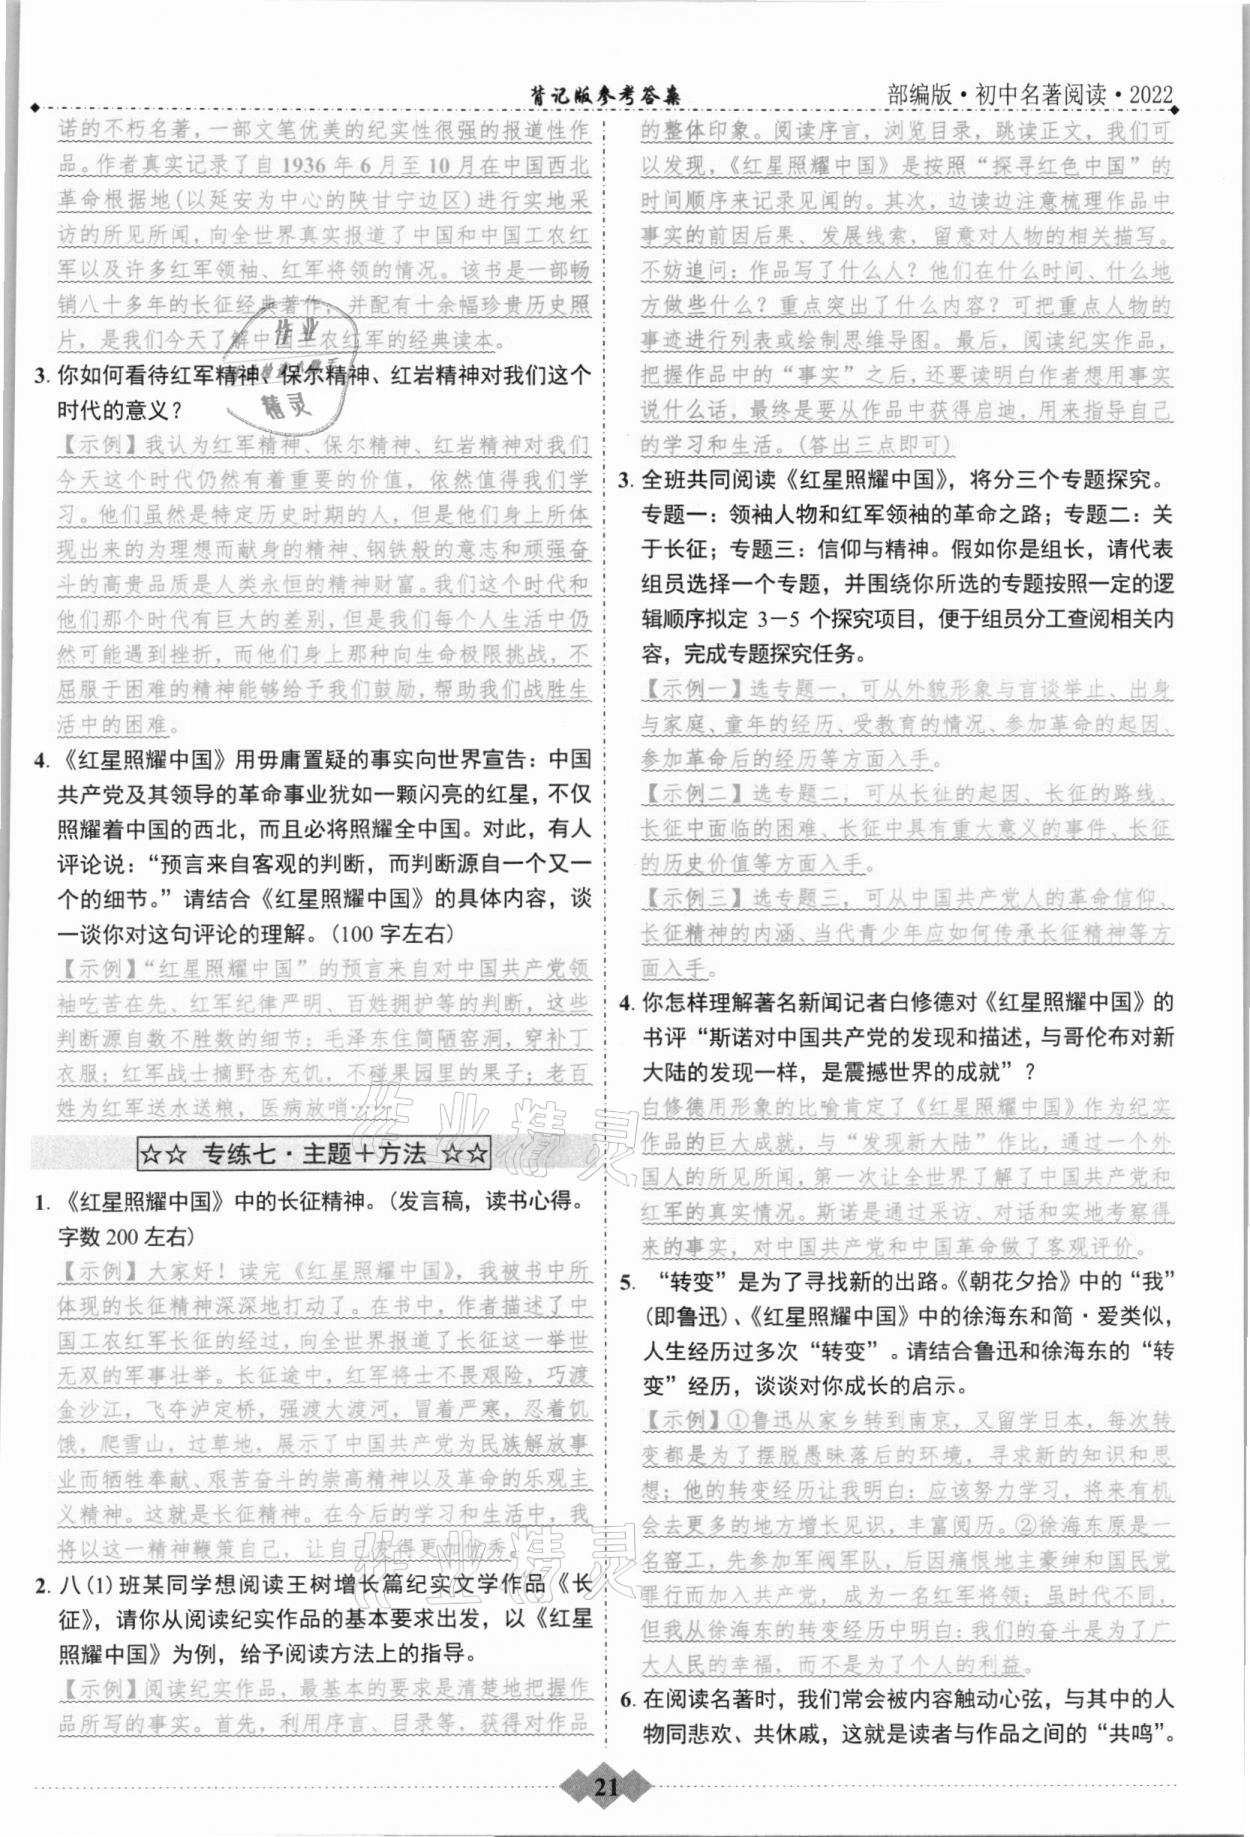 背记版参考答案
部编版·初中名著阅读·2022
诺的不朽名著，一部文笔优美的纪实性很强的报道性作
品。作者真实记录了自1936年6月至10月在中国西北
革命根据地(以延安为中心的陕甘宁边区)进行实地采
访的所见所闻，向全世界真实报道了中国和中国工农红
军以及许多红军领袖、红军将领的情况。该书是一部畅
销八十多年的长征经典著作，并配有十余幅珍贵历史照
片，是我们今天了解中国工农红军的经典读本。
3. 你如何看待红军精神、保尔精神、红岩精神对我们这个
时代的意义？
【示例】我认为红军精神、保尔精神、红岩精神对我们
今天这个时代仍然有着重要的价值，依然值得我们学
习。他们虽然是特定历史时期的人，但是他们身上所体
现出来的为理想而献身的精神、钢铁般的意志和顽强奋
斗的高贵品质是人类永恒的精神财富。我们这个时代和
他们那个时代有巨大的差别，但是我们每个人生活中仍
然可能遇到挫折，而他们身上那种向生命极限挑战，不
屈服于困难的精神能够给予我们鼓励，帮助我们战胜生
活中的困难。
4. 《红星照耀中国》用毋庸置疑的事实向世界宣告：中国
共产党及其领导的革命事业犹如一颗闪亮的红星，不仅
照耀着中国的西北，而且必将照耀全中国。对此，有人
评论说：“预言来自客观的判断，而判断源自一个又一
个的细节。”请结合《红星照耀中国》的具体内容，谈
一谈你对这句评论的理解。(100字左右)
【示例】“红星照耀中国”的预言来自对中国共产党领
袖吃苦在先、红军纪律严明、百姓拥护等的判断，这些
判断源自数不胜数的细节：毛泽东住简陋窑洞，穿补丁
衣服；红军战士摘野杏充饥，不碰果园里的果子；老百
姓为红军送水送粮，医病放哨……
☆☆ 专练七·主题＋方法 ☆☆
1. 《红星照耀中国》中的长征精神。(发言稿，读书心得。
字数200左右)
【示例】大家好！读完《红星照耀中国》，我被书中所
体现的长征精神深深地打动了。在书中，作者描述了中
国工农红军长征的经过，向全世界报道了长征这一举世
无双的军事壮举。长征途中，红军战士不畏艰险，巧渡
金沙江，飞夺泸定桥，强渡大渡河，冒着严寒，忍着饥
饿，爬雪山，过草地，展示了中国共产党为民族解放事
业而牺牲奉献、艰苦奋斗的崇高精神以及革命的乐观主
义精神。这就是长征精神。在今后的学习和生活中，我
将以这一精神鞭策自己，让自己变得更加优秀。
2. 八(1)班某同学想阅读王树增长篇纪实文学作品《长
征》，请你从阅读纪实作品的基本要求出发，以《红星
照耀中国》为例，给予阅读方法上的指导。
【示例】阅读纪实作品，最基本的要求是清楚地把握作
品所写的事实。首先，利用序言、目录等，获得对作品
的整体印象。阅读序言，浏览目录，跳读正文，我们可
以发现，《红星照耀中国》是按照“探寻红色中国”的
时间顺序来记录见闻的。其次，边读边注意梳理作品中
事实的前因后果、发展线索，留意对人物的相关描写。
不妨追问：作品写了什么人？他们在什么时间、什么地
方做些什么？重点突出了什么内容？可把重点人物的
事迹进行列表或绘制思维导图。最后，阅读纪实作品，
把握作品中的“事实”之后，还要读明白作者想用事实
说什么话，最终是要从作品中获得启迪，用来指导自己
的学习和生活。(答出三点即可)
3. 全班共同阅读《红星照耀中国》，将分三个专题探究。
专题一：领袖人物和红军领袖的革命之路；专题二：关
于长征；专题三：信仰与精神。假如你是组长，请代表
组员选择一个专题，并围绕你所选的专题按照一定的逻
辑顺序拟定3—5个探究项目，便于组员分工查阅相关内
容，完成专题探究任务。
【示例一】选专题一，可从外貌形象与言谈举止、出身
与家庭、童年的经历、受教育的情况、参加革命的起因、
参加革命后的经历等方面入手。
【示例二】选专题二，可从长征的起因、长征的路线、
长征中面临的困难、长征中具有重大意义的事件、长征
的历史价值等方面入手。
【示例三】选专题三，可从中国共产党人的革命信仰、
长征精神的内涵、当代青少年应如何传承长征精神等方
面入手。
4. 你怎样理解著名新闻记者白修德对《红星照耀中国》的
书评“斯诺对中国共产党的发现和描述，与哥伦布对新
大陆的发现一样，是震撼世界的成就”？
白修德用形象的比喻肯定了《红星照耀中国》作为纪实
作品的巨大成就，与“发现新大陆”作比，通过一个外
国人的所见所闻，第一次让全世界了解了中国共产党和
红军的真实情况。斯诺是通过采访、对话和实地考察得
来的事实，对中国共产党和中国革命做了客观评价。
5. “转变”是为了寻找新的出路。《朝花夕拾》中的“我”
(即鲁迅)、《红星照耀中国》中的徐海东和简·爱类似，
人生经历过多次“转变”。请结合鲁迅和徐海东的“转
变”经历，谈谈对你成长的启示。
【示例】①鲁迅从家乡转到南京，又留学日本，每次转
变都是为了摆脱愚昧落后的环境，寻求新的知识和思
想；他的转变经历让我明白：应该努力学习，将来有机
会去更多的地方增长见识，丰富阅历。②徐海东原是一
名窑工，先参加军阀军队，后因痛恨地主豪绅和国民党
罪行而加入共产党，成为一名红军将领；虽时代不同，
但我从徐海东的转变经历中明白：我们的奋斗是为了广
大人民的幸福，而不是为了个人的利益。
6. 在阅读名著时，我们常会被内容触动心弦，与其中的人
物同悲欢、共休戚，这就是读者与作品之间的“共鸣”。
21
作业
精灵
作业精灵
作业精灵